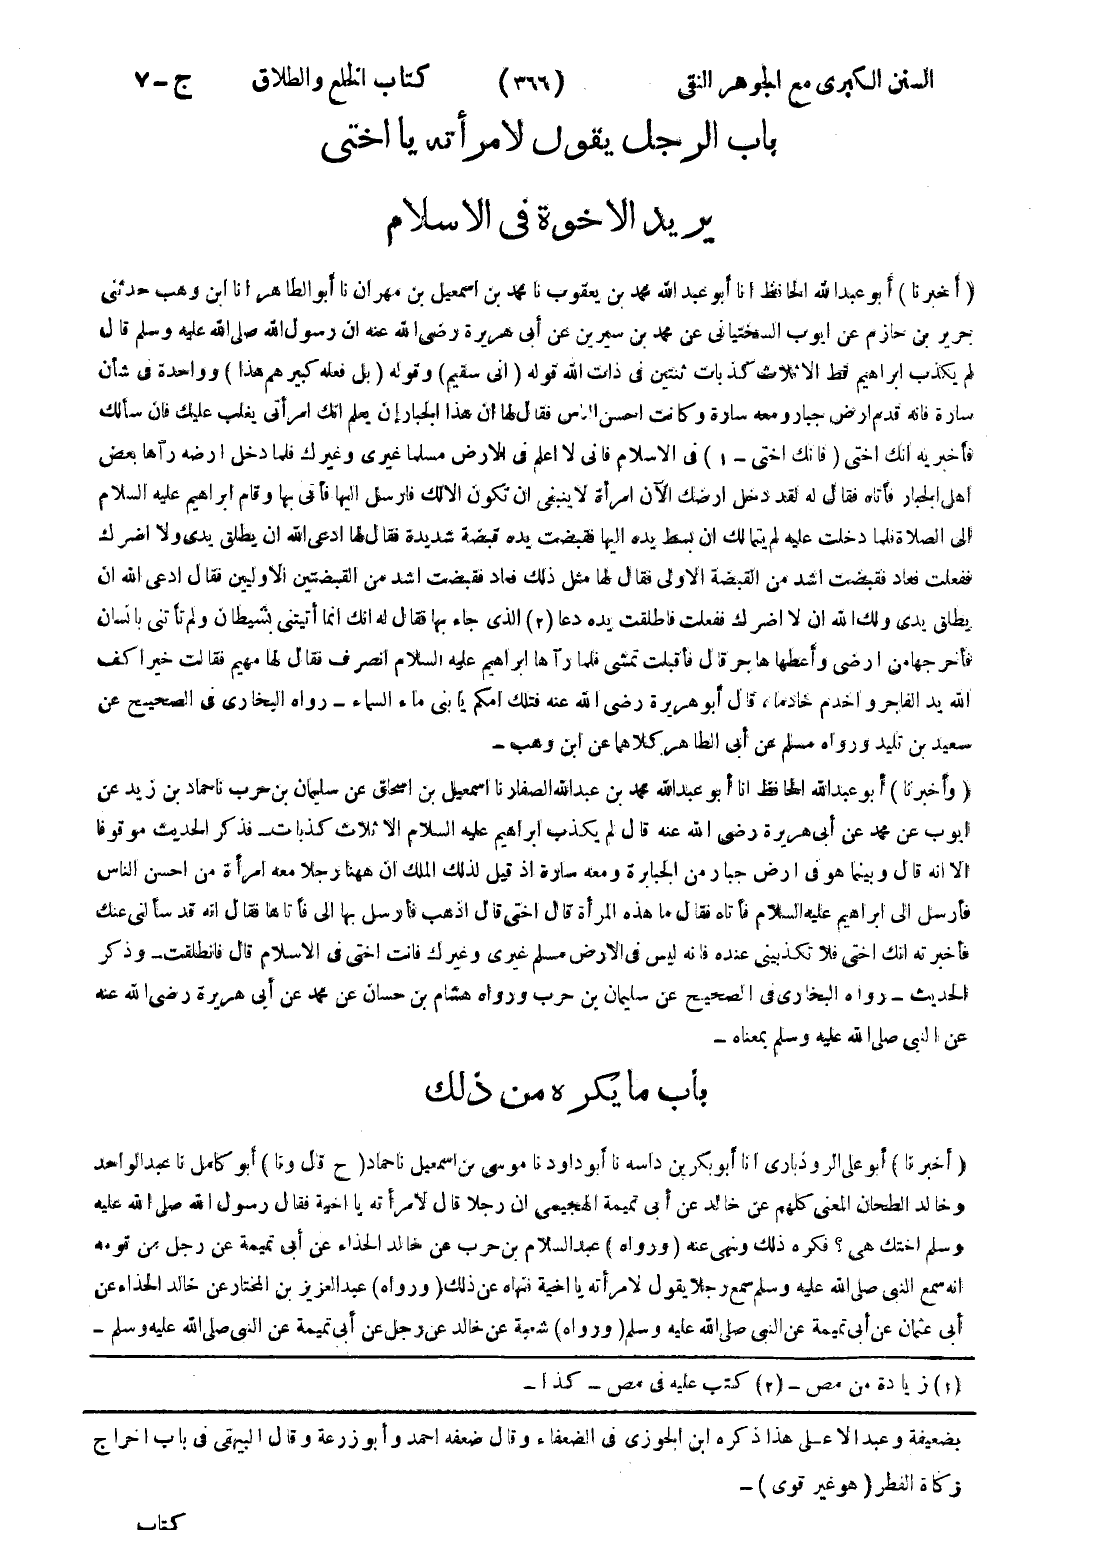 السنن الكبرى مع الجوهر النقى (٣٦٦) كتاب الخلع والطلاق ج – ٧
باب الرجل يقول لامرأته يا اختى
يريد الاخوة فى الاسلام
( أخبرنا ) أبو عبد الله الحافظ انا أبو عبد الله محمد بن يعقوب نا محمد بن اسمعيل بن مهران نا أبو الطاهر انا ابن وهب حدثنى
جرير بن حازم عن ايوب السختيانى عن محمد بن سيرين عن أبى هريرة رضى الله عنه ان رسول الله صلى الله عليه وسلم قال
لم يكذب ابراهيم قط الا ثلاث كذبات ثنتين فى ذات الله قوله ( انى سقيم ) وقوله ( بل فعله كبيرهم هذا ) وواحدة فى شأن
سارة فانه قدم ارض جبار ومعه سارة وكانت احسن الناس فقال لها ان هذا الجبار إن يعلم انك امرأتى يغلب عليك فان سألك
فأخبريه انك اختى ( فانك اختى – ١ ) فى الاسلام فانى لا اعلم فى الارض مسلما غيرى وغيرك فلما دخل ارضه رآها بعض
اهل الجبار فأتاه فقال له لقد دخل ارضك الآن امرأة لا ينبغى ان تكون الا لك فارسل اليها فأتى بها وقام ابراهيم عليه السلام
الى الصلاة فلما دخلت عليه لم يتمالك ان بسط يده اليها فقبضت يده قبضة شديدة فقال لها ادعى الله ان يطلق يدى ولا اضرك
ففعلت فعاد فقبضت اشد من القبضة الاولى فقال لها مثل ذلك فعاد فقبضت اشد من القبضتين الاوليين فقال ادعى الله ان
يطلق يدى ولك الله ان لا اضرك ففعلت فاطلقت يده دعا (٢) الذى جاء بها فقال له انك انما أتيتنى بشيطان ولم تأتنى بانسان
فأخرجها من ارضى وأعطها هاجر قال فأقبلت تمشى فلما رآها ابراهيم عليه السلام انصرف فقال لها مهيم فقالت خيرا كف
الله يد الفاجر واخدم خادما، قال أبو هريرة رضى الله عنه فتلك امكم يا بنى ماء السماء – رواه البخارى فى الصحيح عن
سعيد بن تليد ورواه مسلم عن أبى الطاهر كلاهما عن ابن وهب –
( وأخبرنا ) أبو عبد الله الحافظ انا أبو عبد الله محمد بن عبد الله الصفار نا اسمعيل بن اسحاق عن سليمان بن حرب نا حماد بن زيد عن
ايوب عن محمد عن أبى هريرة رضى الله عنه قال لم يكذب ابراهيم عليه السلام الا ثلاث كذبات – فذكر الحديث موقوفا
الا انه قال وبينما هو فى ارض جبار من الجبابرة ومعه سارة اذ قيل لذلك الملك ان ههنا رجلا معه امرأة من احسن الناس
فأرسل الى ابراهيم عليه السلام فأتاه فقال ما هذه المرأة قال اختى قال اذهب فأرسل بها الى فأتاها فقال انه قد سألنى عنك
فأخبرته انك اختى فلا تكذبينى عنده فانه ليس فى الارض مسلم غيرى وغيرك فانت اختى فى الاسلام قال فانطلقت – وذكر
الحديث – رواه البخارى فى الصحيح عن سليمان بن حرب ورواه هشام بن حسان عن محمد عن أبى هريرة رضى الله عنه
عن النبى صلى الله عليه وسلم بمعناه –
باب ما يكره من ذلك
( أخبرنا ) أبو على الروذبارى انا أبو بكر بن داسه نا أبو داود نا موسى بن اسمعيل نا حماد ( ح قال ونا ) أبو كامل نا عبد الواحد
وخالد الطحان المعنى كلهم عن خالد عن أبى تميمة الهجيمى ان رجلا قال لامرأته يا اخية فقال رسول الله صلى الله عليه
وسلم اختك هى ؟ فكره ذلك ونهى عنه ( ورواه ) عبد السلام بن حرب عن خالد الحذاء عن أبى تميمة عن رجل من قومه
انه سمع النبى صلى الله عليه وسلم سمع رجلا يقول لامرأته يا اخية فنهاه عن ذلك ( ورواه ) عبد العزيز بن المختار عن خالد الحذاء عن
أبى عثمان عن أبى تميمة عن النبى صلى الله عليه وسلم ( ورواه ) شعبة عن خالد عن رجل عن أبى تميمة عن النبى صلى الله عليه وسلم –
(١) زيادة من مص – (٢) كتب عليه فى مص – كذا –
بضعيفة وعبد الاعلى هذا ذكره ابن الجوزى فى الضعفاء وقال ضعفه احمد وأبو زرعة وقال البيهقى فى باب اخراج
زكاة الفطر ( هو غير قوى ) –
كتاب